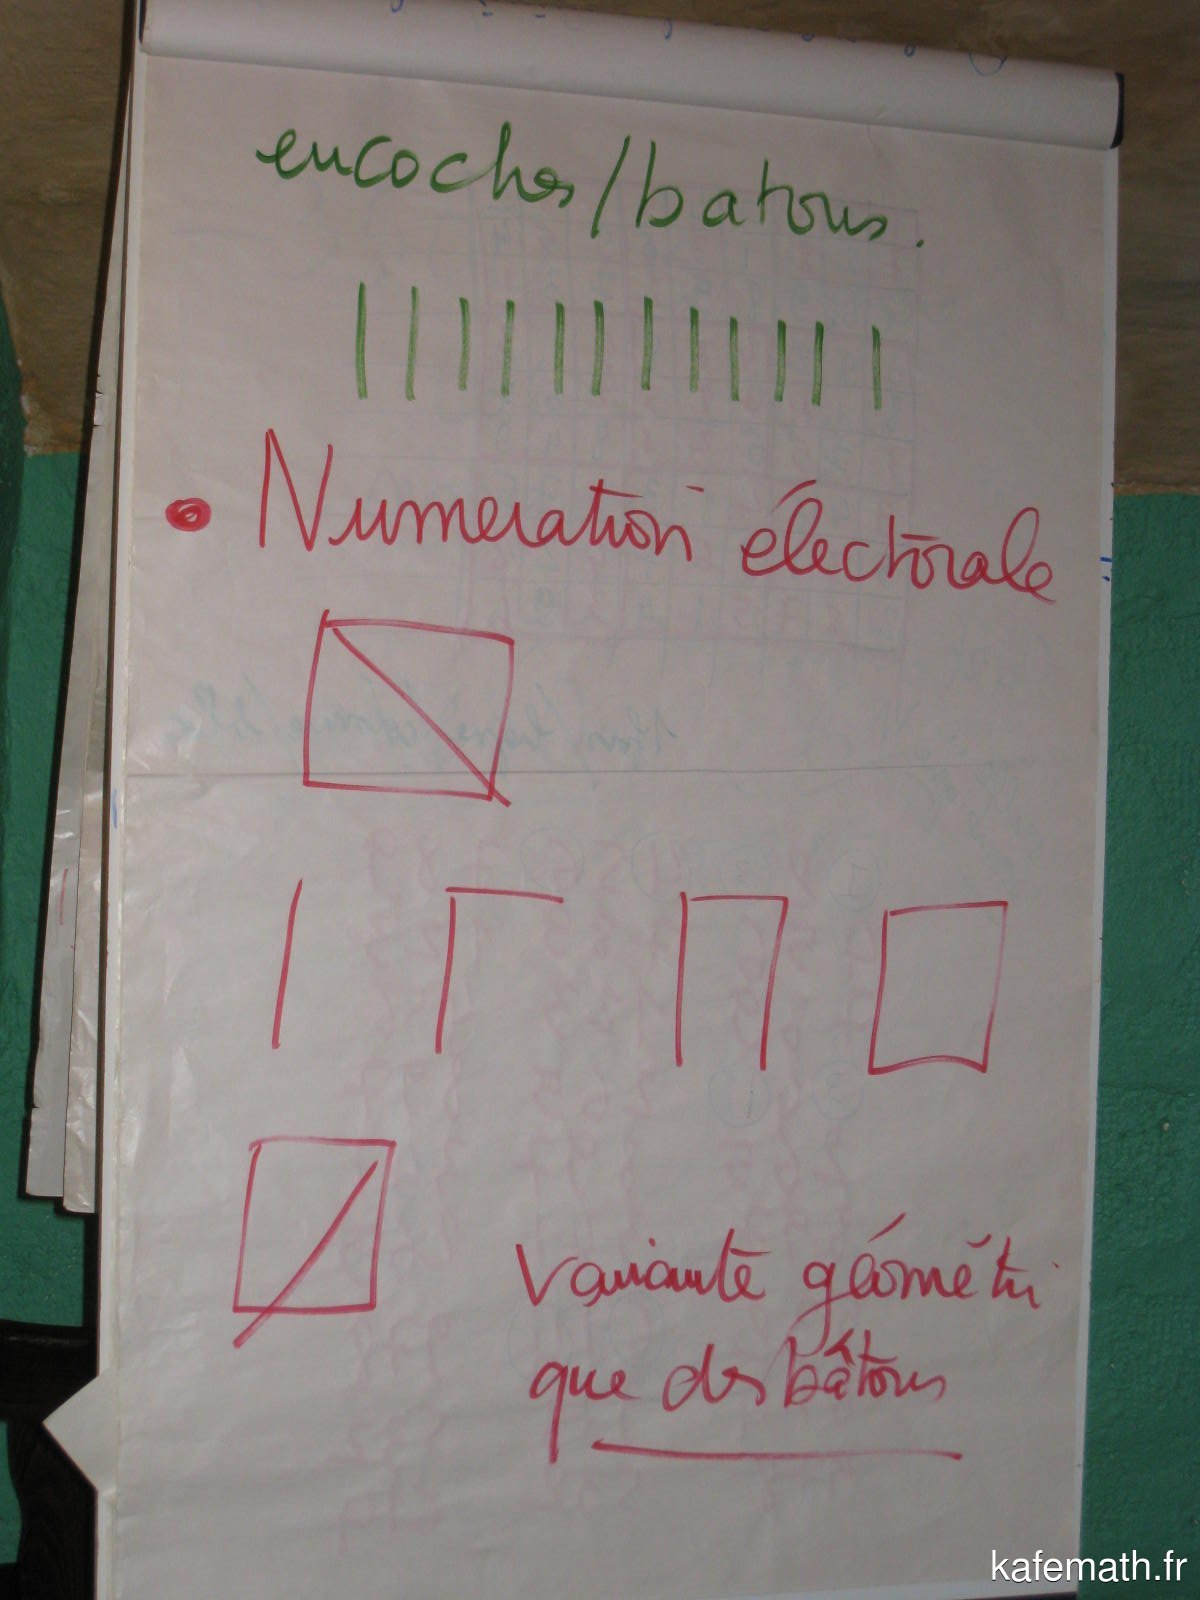 encoches/batons.
• Numeration électorale
variante géométri
que des bâtons
kafemath.fr